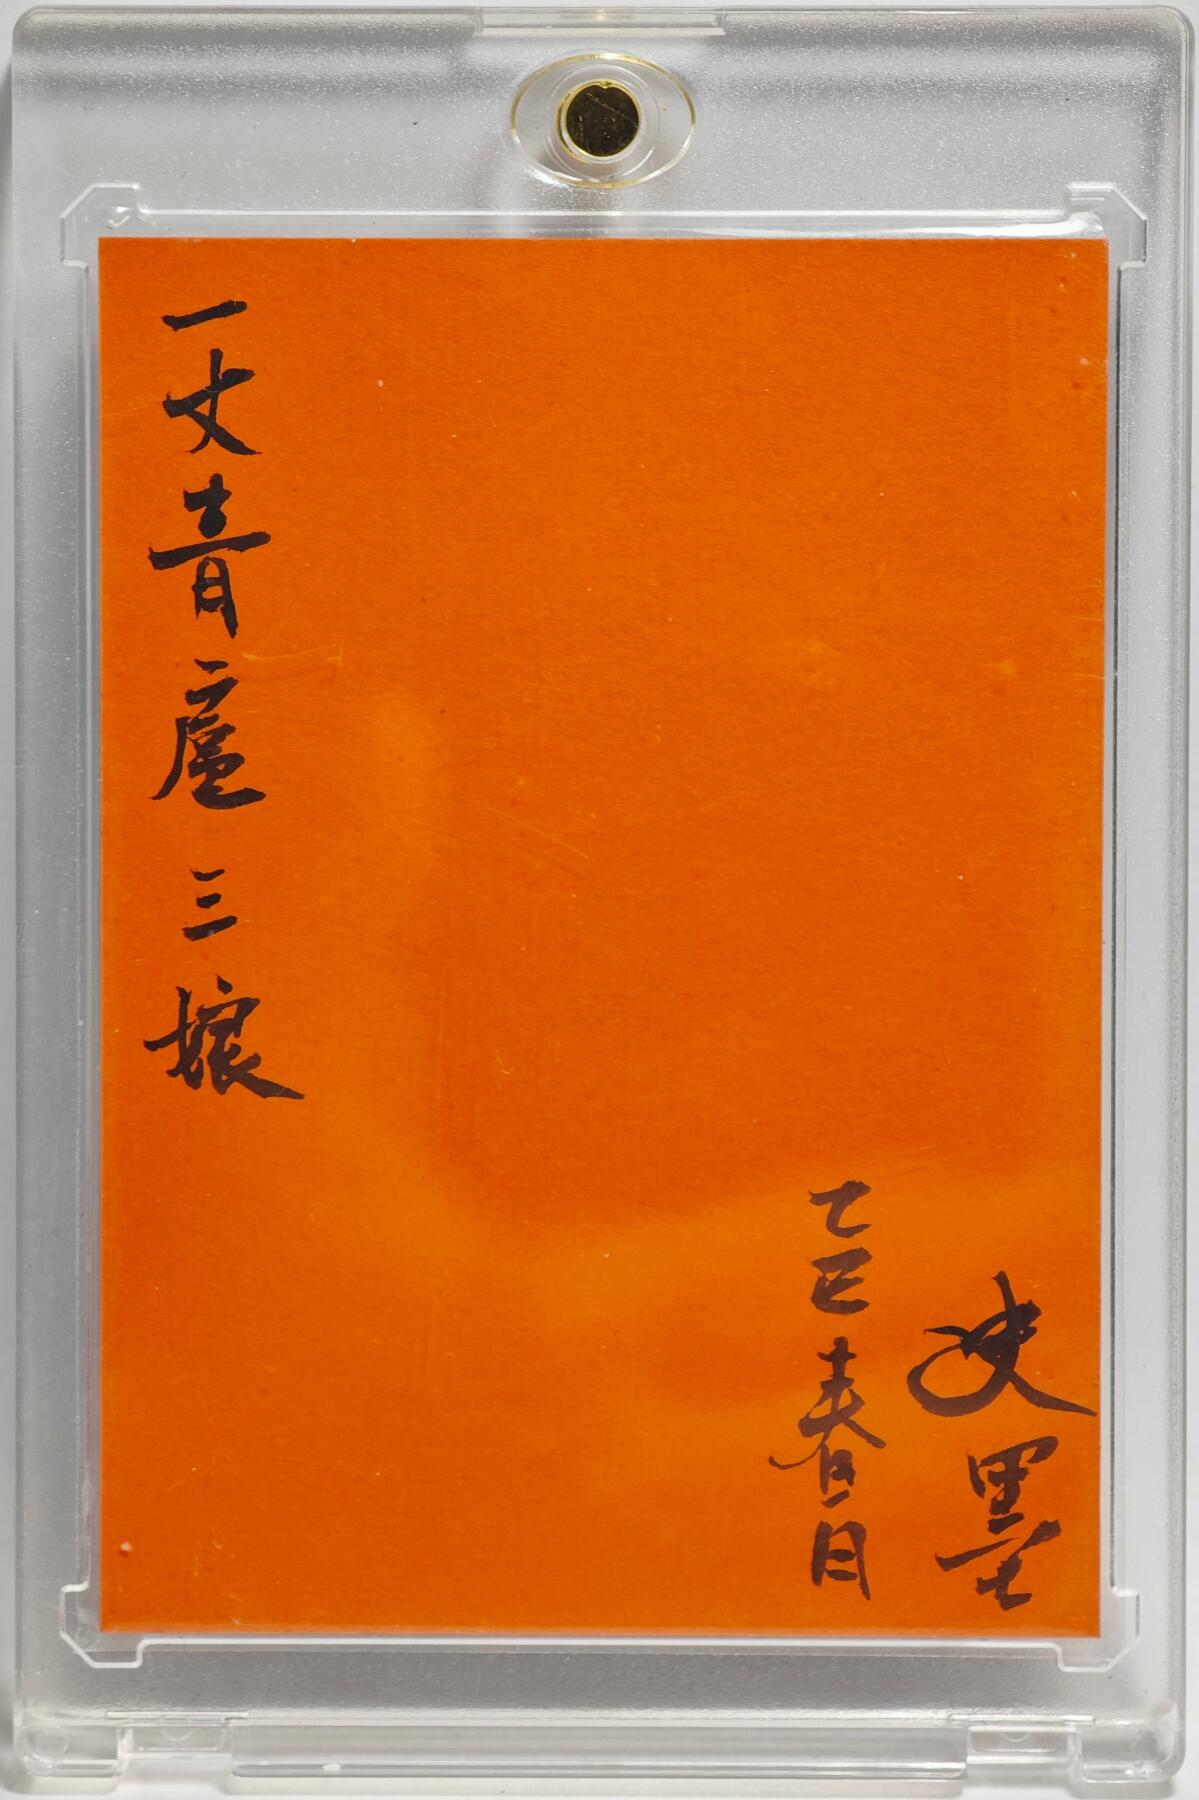 一丈青扈三娘
乙巳春
史墨